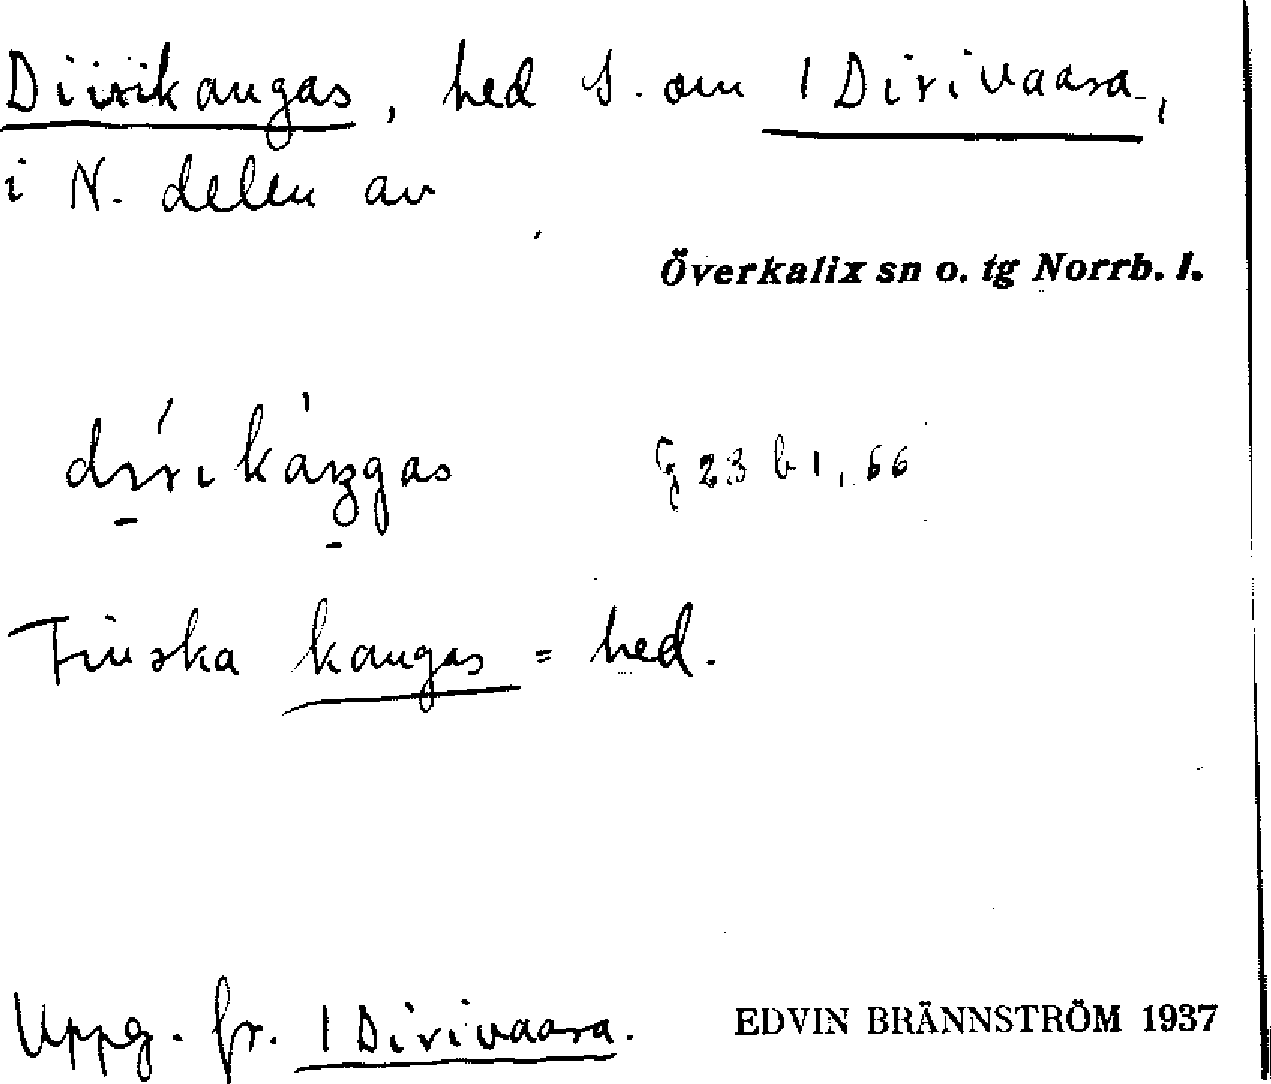 Diirikangas, hed S. om 1 Dirivaara,
i N. delen av
Överkalix sn o. tg Norrb. l.
§ 23 b 1, 66
Finska kangas = hed.
Uppg. fr. 1 Dirivaara.
EDVIN BRÄNNSTRÖM 1937